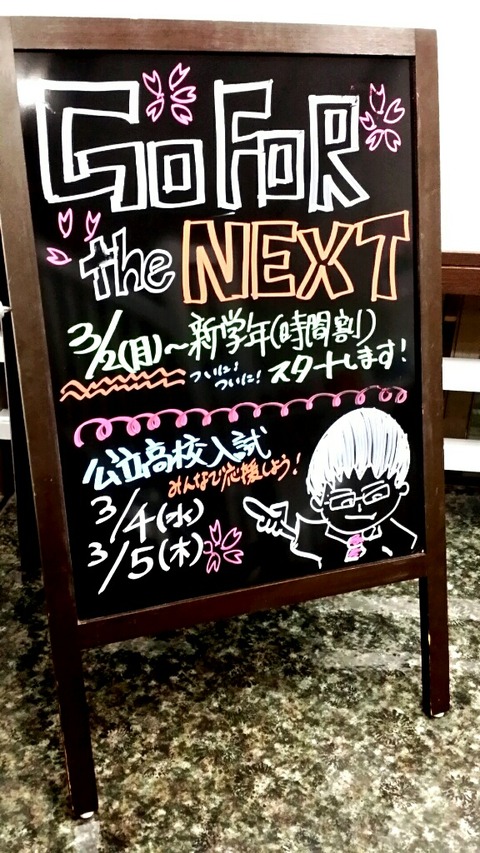 GO FOR
the NEXT
3/2(月)~新学年(時間割)
ついに! ついに! スタートします!
公立高校入試
みんなで応援しよう!
3/4(水)
3/5(木)